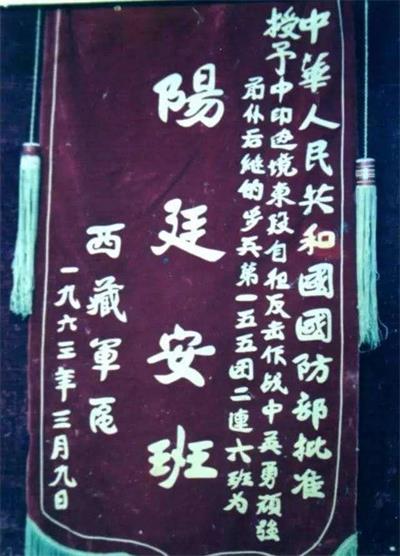 中華人民共和國國防部批准
授予中印边境東段自衛反击作战中英勇頑強
前仆后継的步兵第一五五团二連六班为
陽廷安班
西藏軍區
一九六三年三月九日